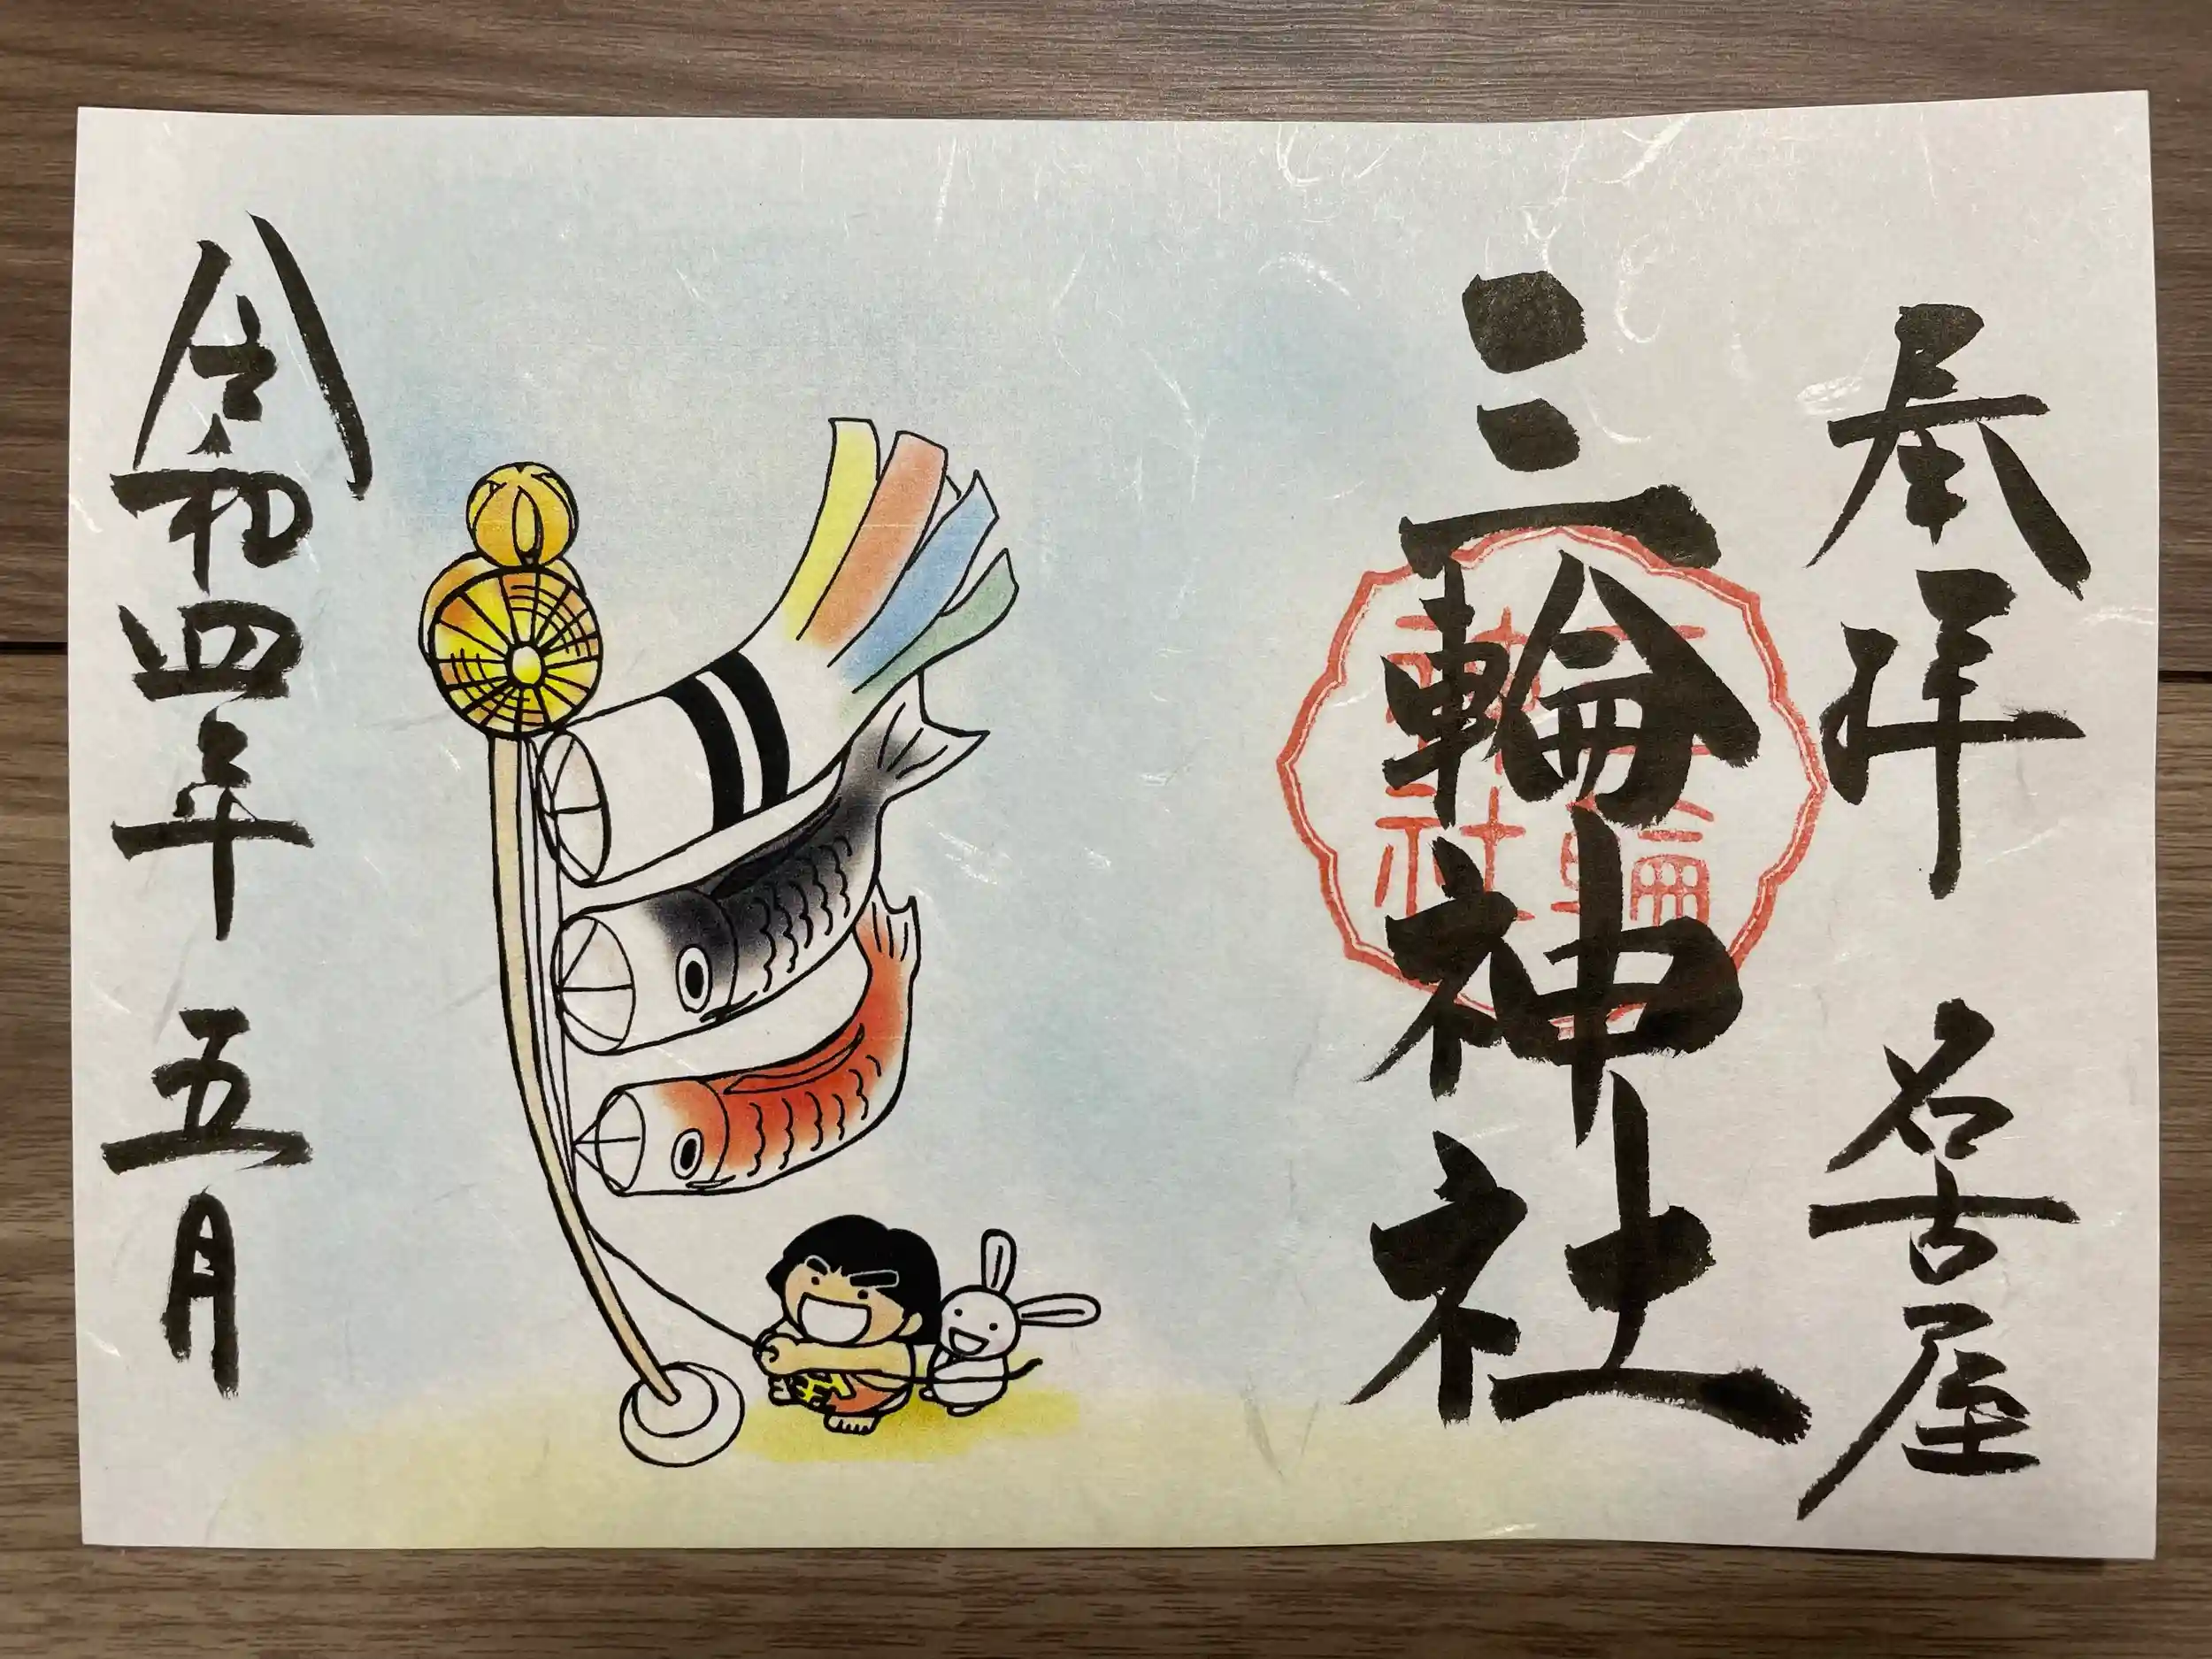 奉拝 名古屋
三輪神社
三輪
神社
令和四年 五月
金